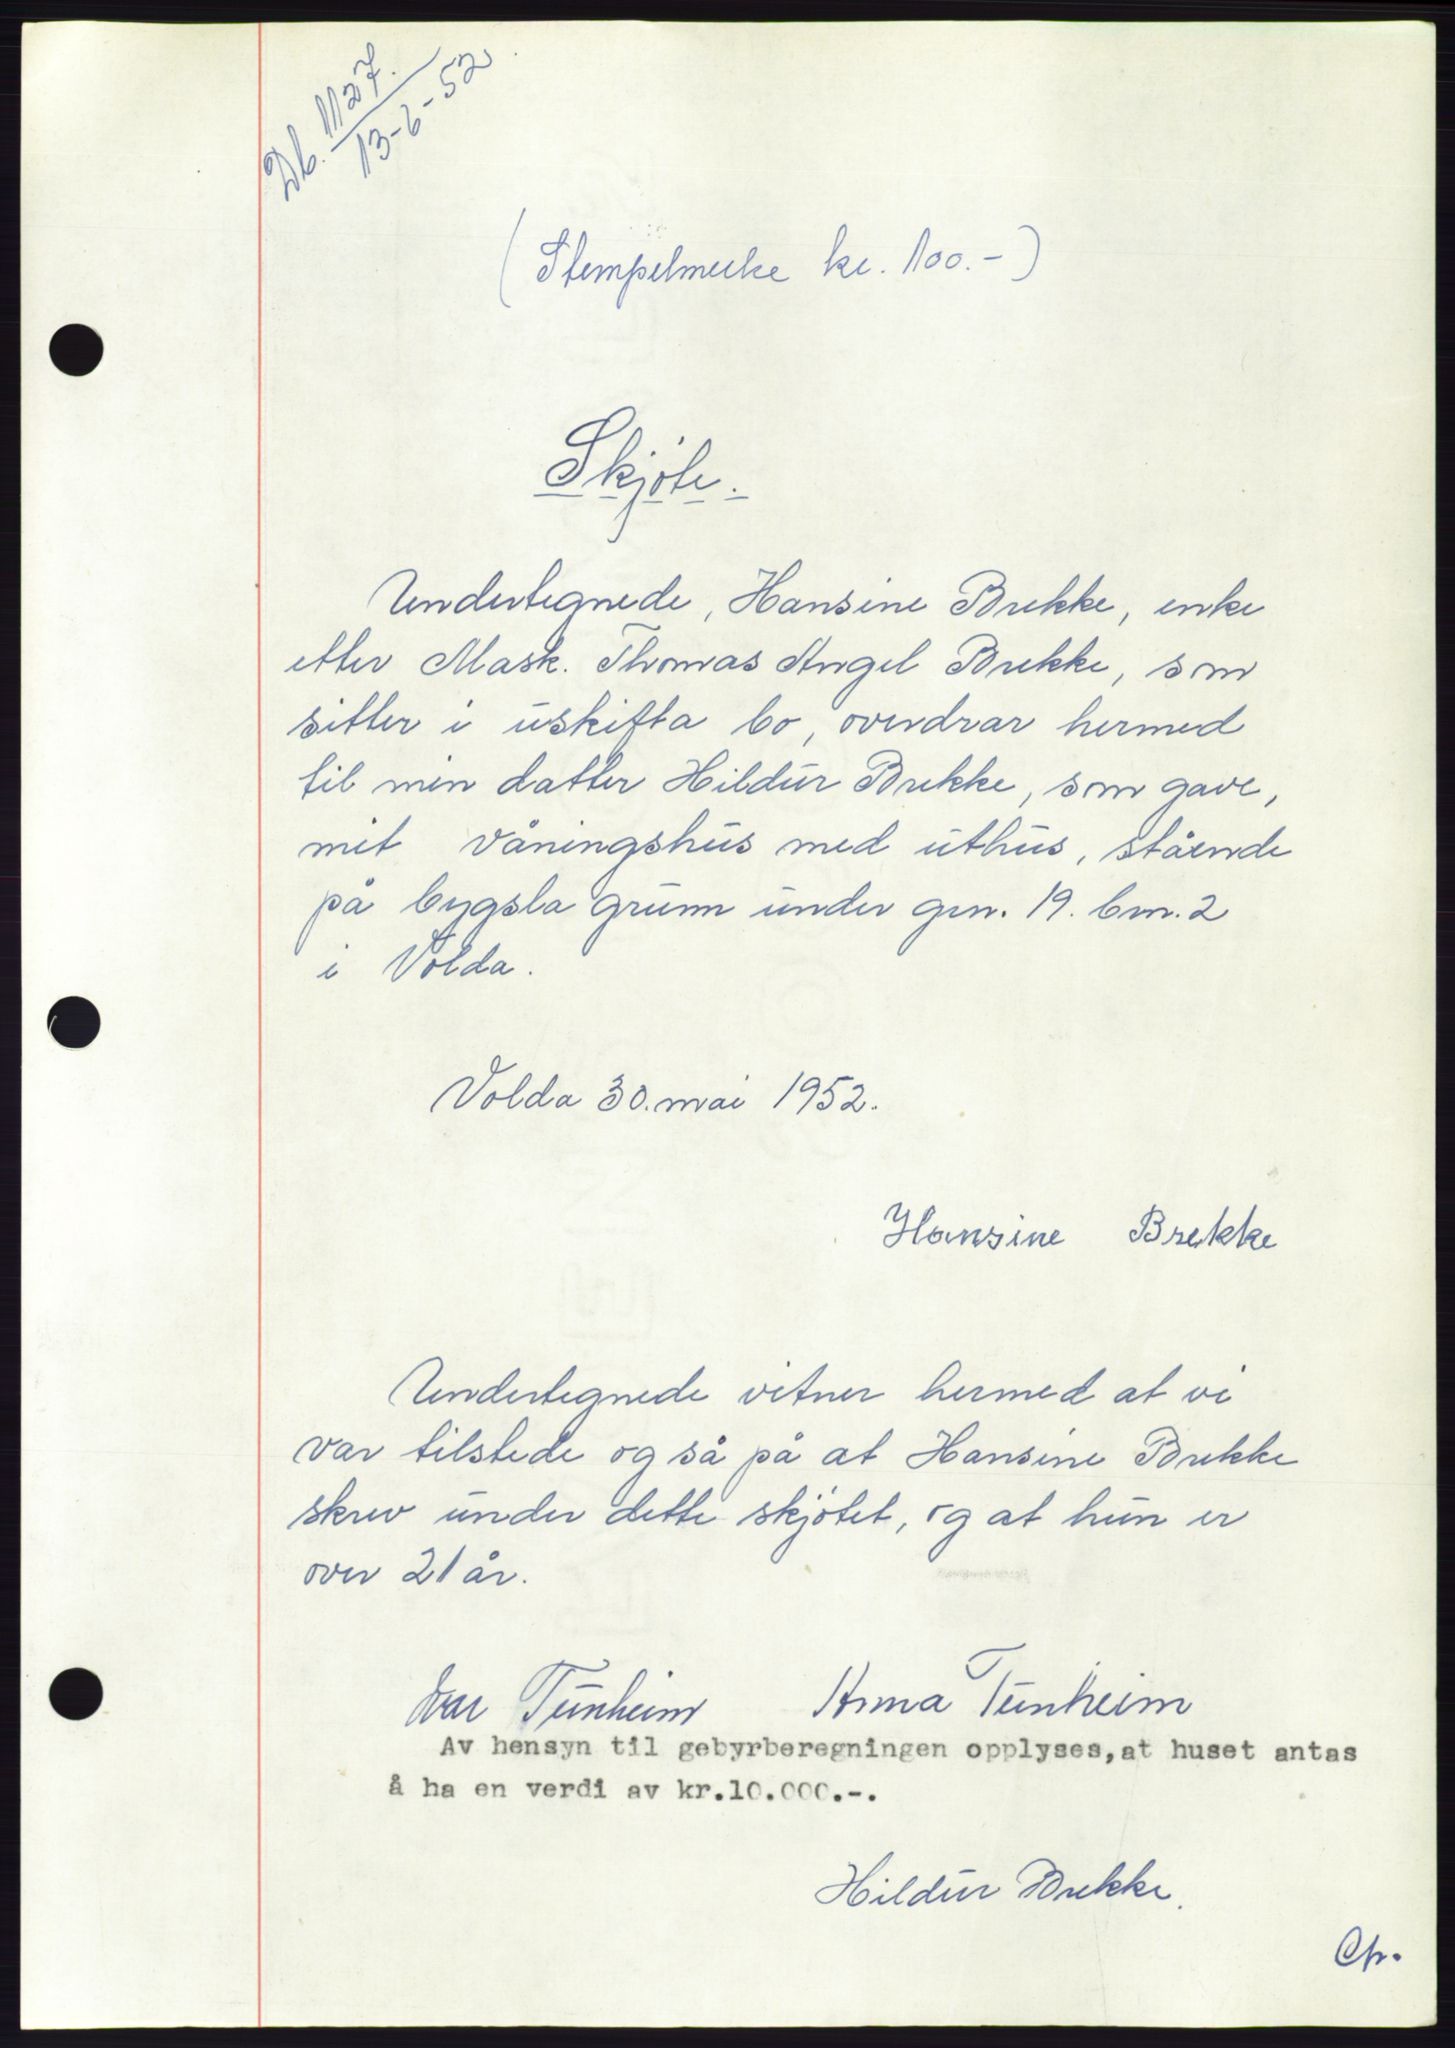 Db. 1127.
13-6-52
(Stempelmerke kr. 100.-)
Skjöte.
Undertegnede, Hansine Brekke, enke
etter Mask. Thomas Angel Brekke, som
sitter i uskifta bo, overdrar hermed
til min datter Hildur Brekke, som gave,
mit våningshus med uthus, stående
på bygsla grunn under gnr. 19. bnr. 2
i Volda.
Volda 30. mai 1952.
Hansine Brekke
Undertegnede vitner hermed at vi
var tilstede og så på at Hansine Brekke
skrev under dette skjötet, og at hun er
over 21 år.
Ivar Tunheim Anna Tunheim
Av hensyn til gebyrberegningen opplyses, at huset antas
å ha en verdi av kr.10.000.-.
Hildur Brekke.